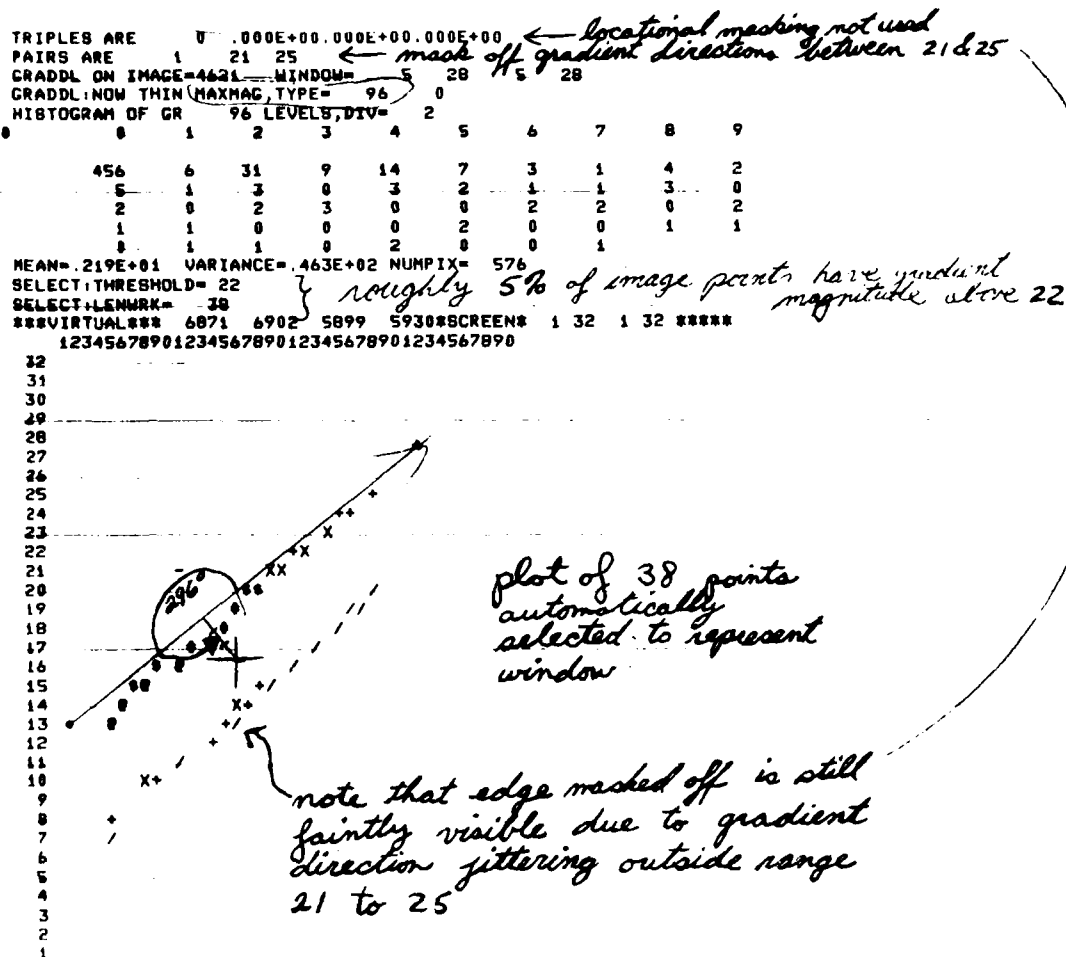 TRIPLES ARE 0 .000E+00.000E+00.000E+00 ← locational masking not used
PAIRS ARE 1 21 25 ← mask off gradient directions between 21 & 25
GRADDL ON IMAGE=4621 WINDOW= 5 28 5 28
GRADDL:NOW THIN (MAXMAG,TYPE= 96 0
HISTOGRAM OF GR 96 LEVELS,DIV= 2
0 0 1 2 3 4 5 6 7 8 9
456 6 31 9 14 7 3 1 4 2
5 1 3 0 3 2 1 1 3 0
2 0 2 3 0 0 2 2 0 2
1 1 0 0 0 2 0 0 1 1
0 1 1 0 2 0 0 1
MEAN=.219E+01 VARIANCE=.463E+02 NUMPIX= 576
SELECT:THRESHOLD= 22
SELECT:LENWRK= 38
} roughly 5% of image points have gradient
magnitude above 22
***VIRTUAL*** 6871 6902 5899 5930*SCREEN* 1 32 1 32 *****
1234567890123456789012345678901234567890
32
31
30
29
28
27
26
25 +
24 ++
23 X
22 +X
21 - XX
20
19
18
17
16
15 +/
14 X+
13 +/
12 +
11 /
10 X+
9
8 +
7 /
6
5
4
3
2
1
296°
plot of 38 points
automatically
selected to represent
window
note that edge masked off is still
faintly visible due to gradient
direction jittering outside range
21 to 25